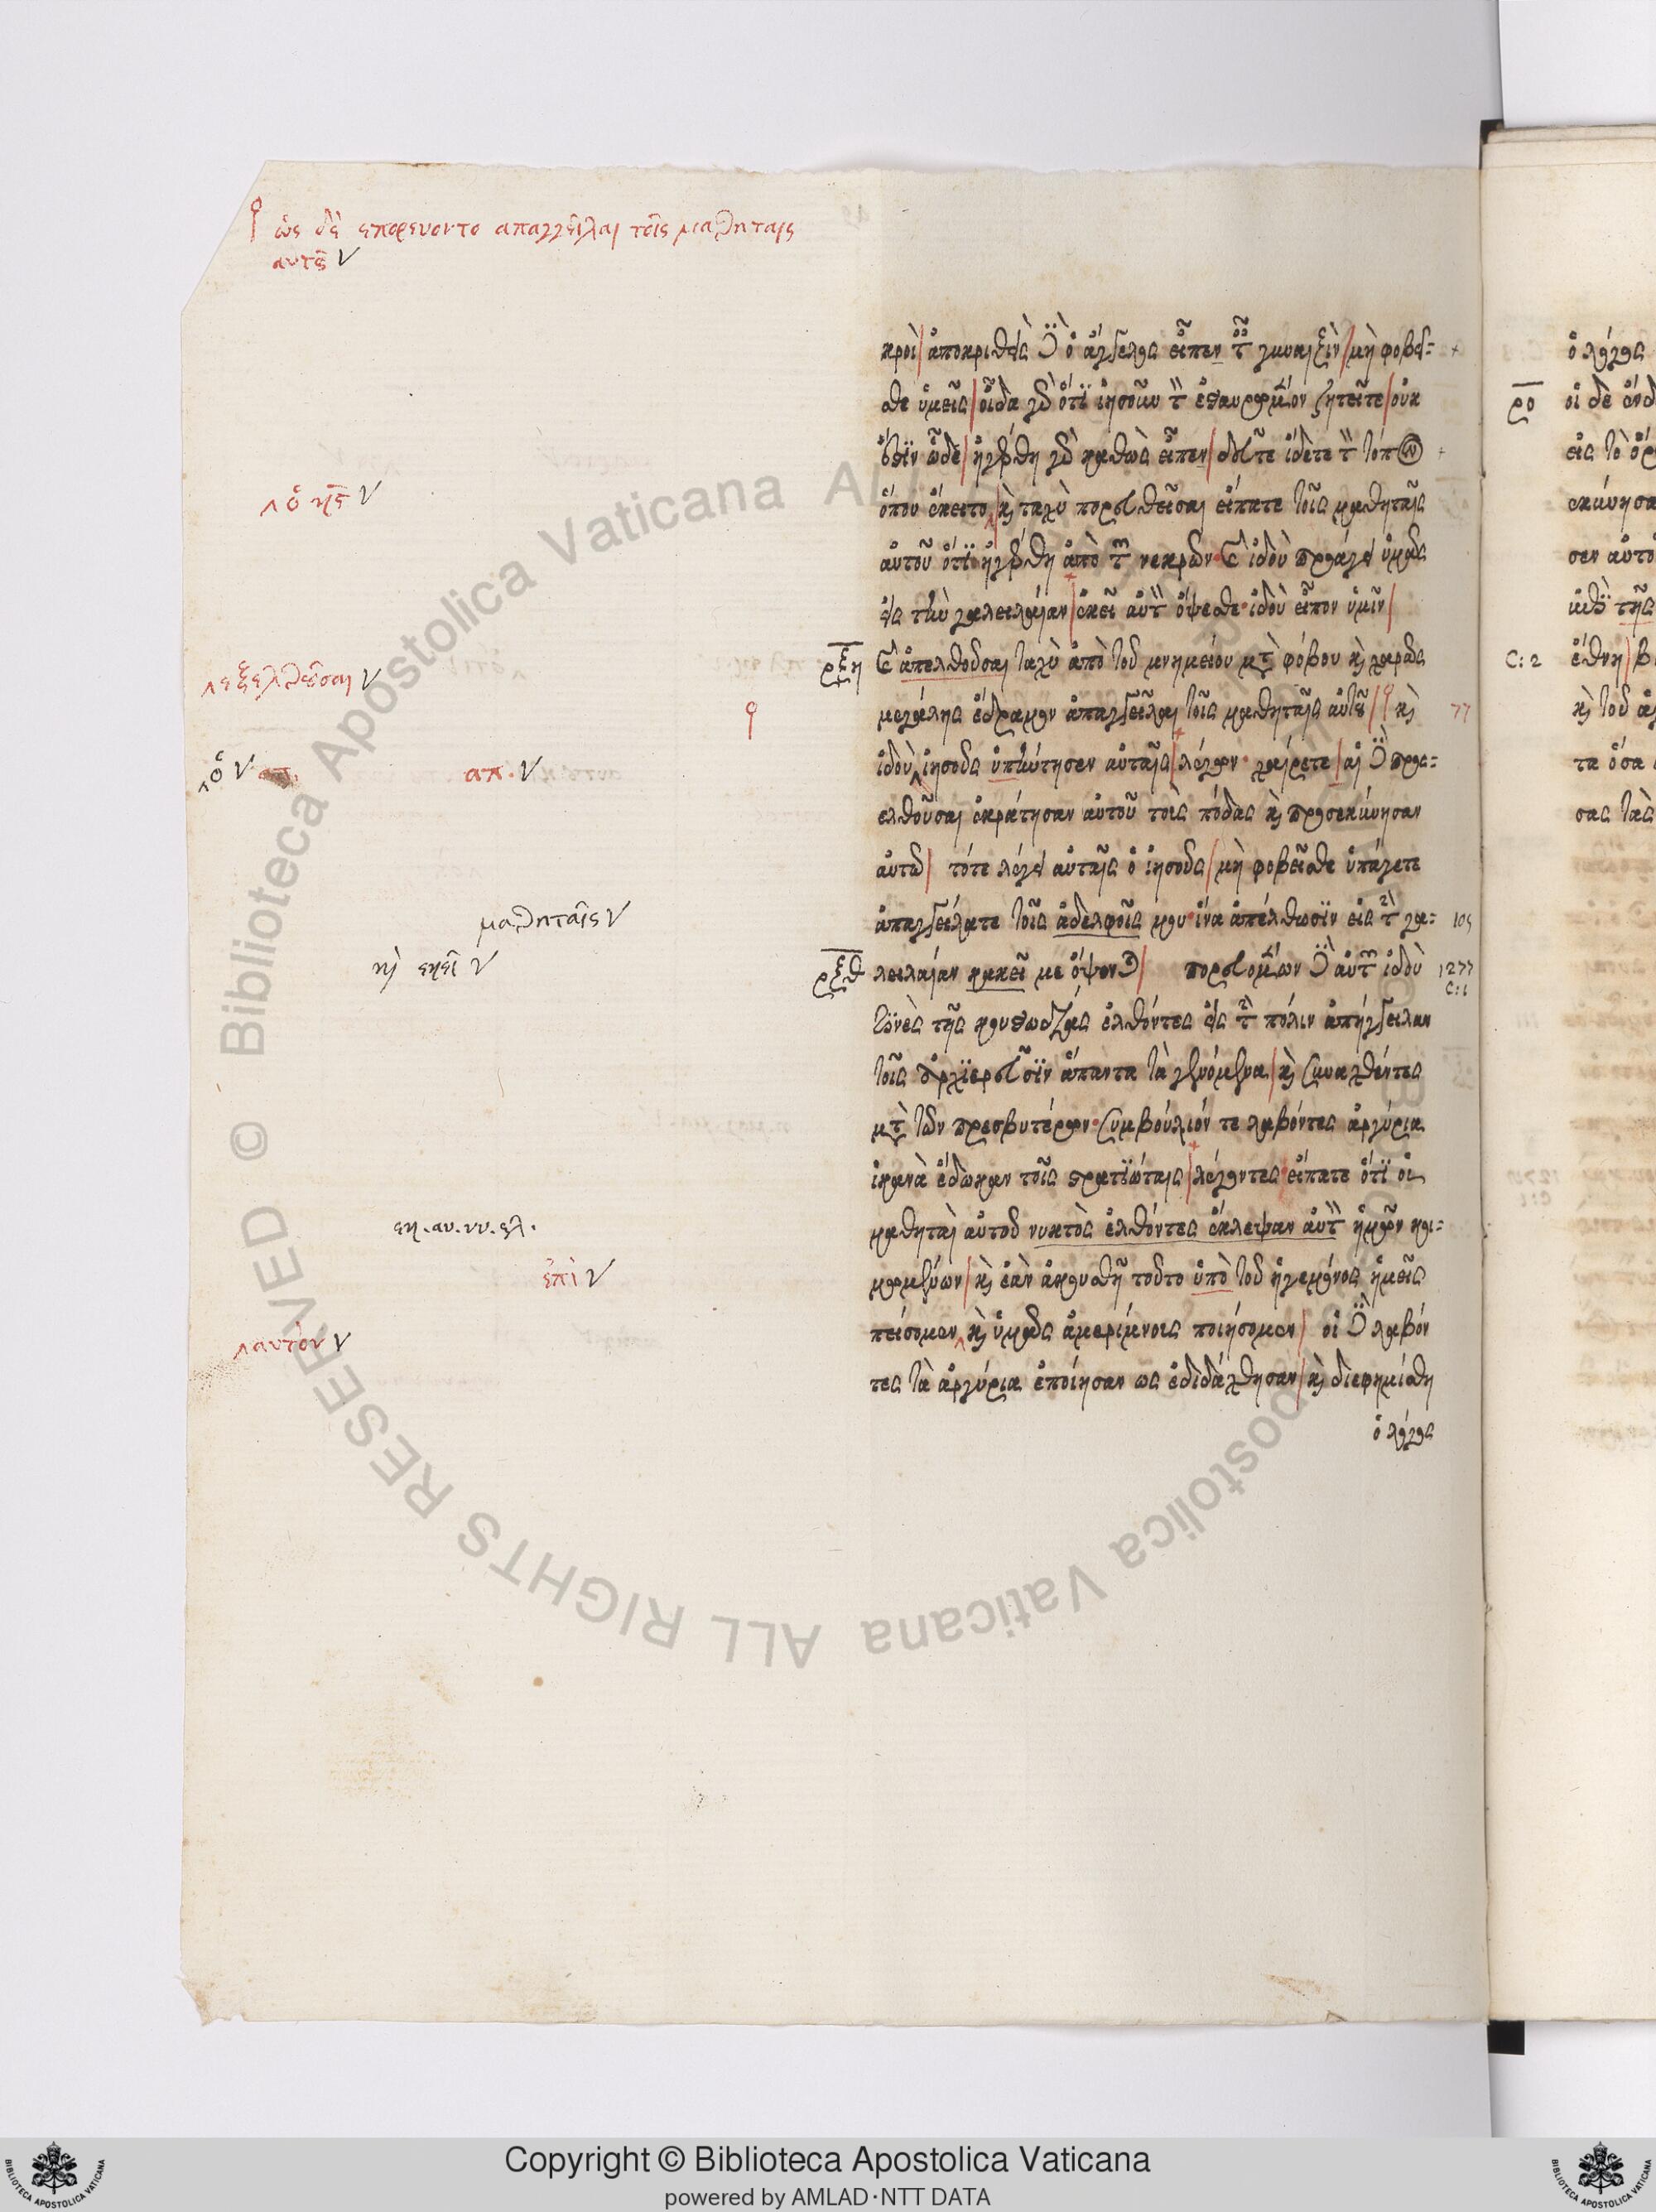 ὡς δὲ επορευοντο απαγγεῖλαι τοῖς μαθηταις
αυτȣ͂
κροὶ/ ἀποκριθεὶς δὲ ὁ ἄγγελος εἶπεν τ γυναιξὶν/ μὴ φοβεῖ=
σθε ὑμεῖς/ οἶδα γὰρ ὅτϊ ἰησοῦν τ ἐσταυρωμένον ζητεῖτε/ οὐκ
ἔστϊν ὧδε/ ἠγέρθη γὰρ καθὼς εἶπεν/ δεῦτε ἴδετε τ τόπον
ὅπου ἔκειτο/ κ̀ ταχὺ πορευθεῖσαι εἴπατε τοῖς μαθηταῖς
αὐτοῦ ὅτϊ ἠγέρθη ἀπὸ τ νεκρῶν· κ̀ ἰδοὺ προάγει ὑμᾶς
εἰς τὴν γαλειλαίαν/ ἐκεῖ αὐτ ὄψεσθε· ἰδοὺ εἶπον ὑμῖν/
ρξη κ̀ ἀπελθοῦσαι ταχὺ ἀπὸ τοῦ μνημείου μτ̀ φόβου κ̀ χαρᾶς
μεγάλης ἔδραμον ἀπαγγεῖλαι τοῖς μαθηταῖς αὐτȣ͂/ κ̀
77
ἰδοὺ ἰησοῦς ὑπήντησεν αὐταῖς/ λέγων· χαίρετε/ αἱ δὲ προσ=
ελθοῦσαι ἐκράτησαν αὐτοῦ τοὺς πόδας κ̀ προσεκύνησαν
αὐτῷ/ τότε λέγει αὐταῖς ὁ ἰησοῦς/ μὴ φοβεῖσθε ὑπάγετε
ἀπαγγείλατε τοῖς ἀδελφοῖς μου ἵνα ἀπέλθωσϊν εἰς τ γα=
ρξθ λειλαίαν κακεῖ με ὄψονται/ πορευομένων δὲ αὐτ ἰδοὺ
1277
C:1
τϊνὲς τῆς κουστωδίας ἐλθόντες εἰς τ πόλιν ἀπήγγειλαν
τοῖς ἀρχϊερεῦσϊν ἅπαντα τὰ γενόμενα/ κ̀ συναχθέντες
μτ̀ τῶν πρεσβυτέρων· συμβούλιόν τε λαβόντες ἀργύρια
ἱκανὰ ἔδωκαν τοῖς στρατϊώταις/ λέγοντες· εἴπατε ὅτϊ οἱ
μαθηταὶ αὐτοῦ νυκτὸς ἐλθόντες ἔκλεψαν αὐτ ἡμῶν κοι=
μωμένων/ κ̀ ἐὰν ἀκουσθῇ τοῦτο ὑπὸ τοῦ ἡγεμόνος ἡμεῖς
πείσομεν κ̀ ὑμᾶς ἀμερίμνους ποιήσομεν/ οἱ δὲ λαβόν
τες τὰ ἀργύρια ἐποίησαν ως ἐδιδάχθησαν/ κ̀ διεφημίσθη
ὁ λόγος
ὁ κς
εξελθοῦσαι
ὁ
απ.
μαθηταῖς
κ̀ εκεῖ
εκ.αυ.νυ.ελ.
ἐπὶ
αυτὸν
ὁ λόγος
ρο οἱ δὲ ἕνδ
εἰς τὸ ὄρ
εκύνησα
σεν αὐτο
τῆς
C:2 ἔθνη/ β
κ̀ τοῦ ἁγ
τα ὅσα
σας τὰς
© Biblioteca Apostolica Vaticana ALL RIGHTS RESERVED
Copyright © Biblioteca Apostolica Vaticana
powered by AMLAD·NTT DATA
BIBLIOTECA APOSTOLICA VATICANA
BIBLIOTECA APOSTOLICA VATICANA